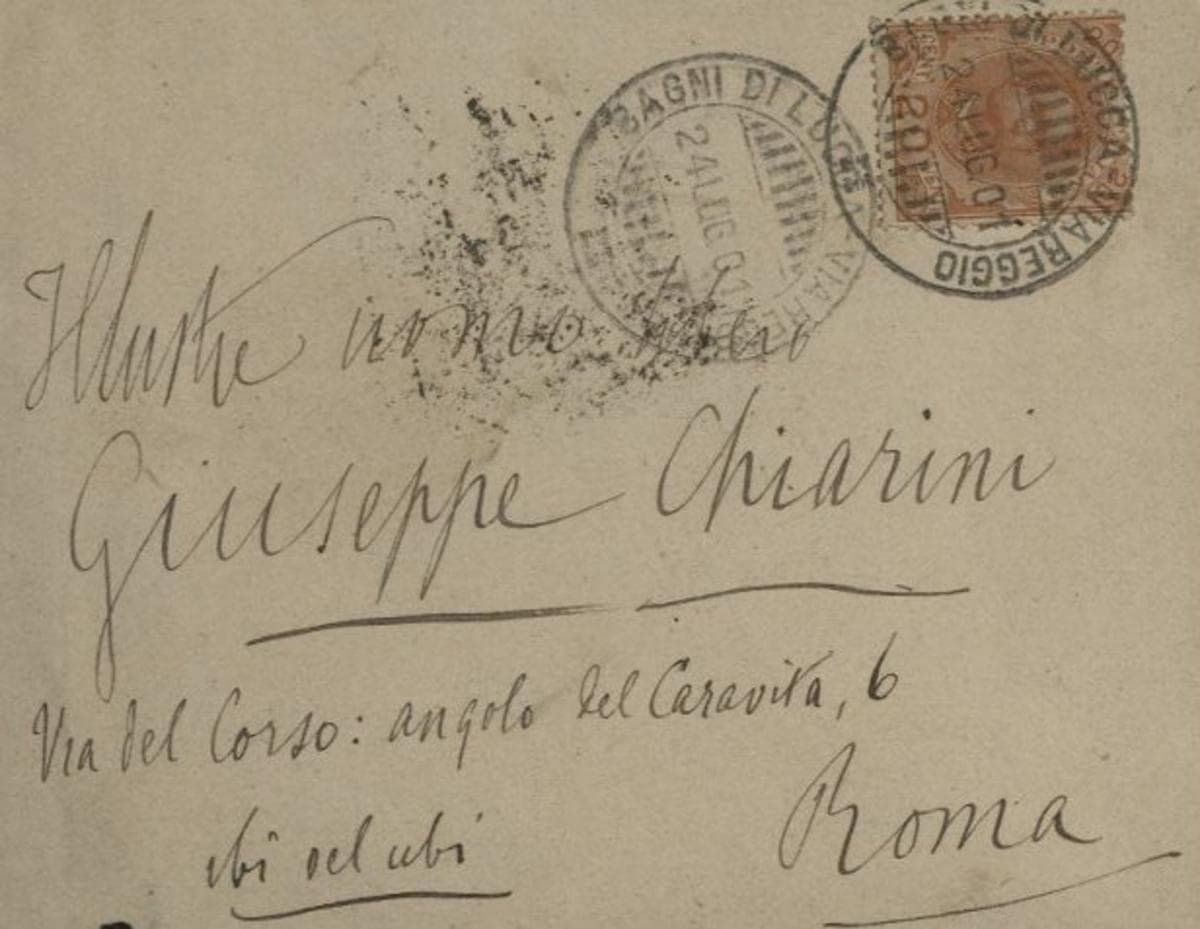 BAGNI DI LUCCA VIAREGGIO
24 LUG 01
LUCCA-VIAREGGIO
24 LUG 01
CENT 20
Illustre uomo
Giuseppe Chiarini
Via del Corso: angolo del Caravita, 6
ibi vel ubi
Roma